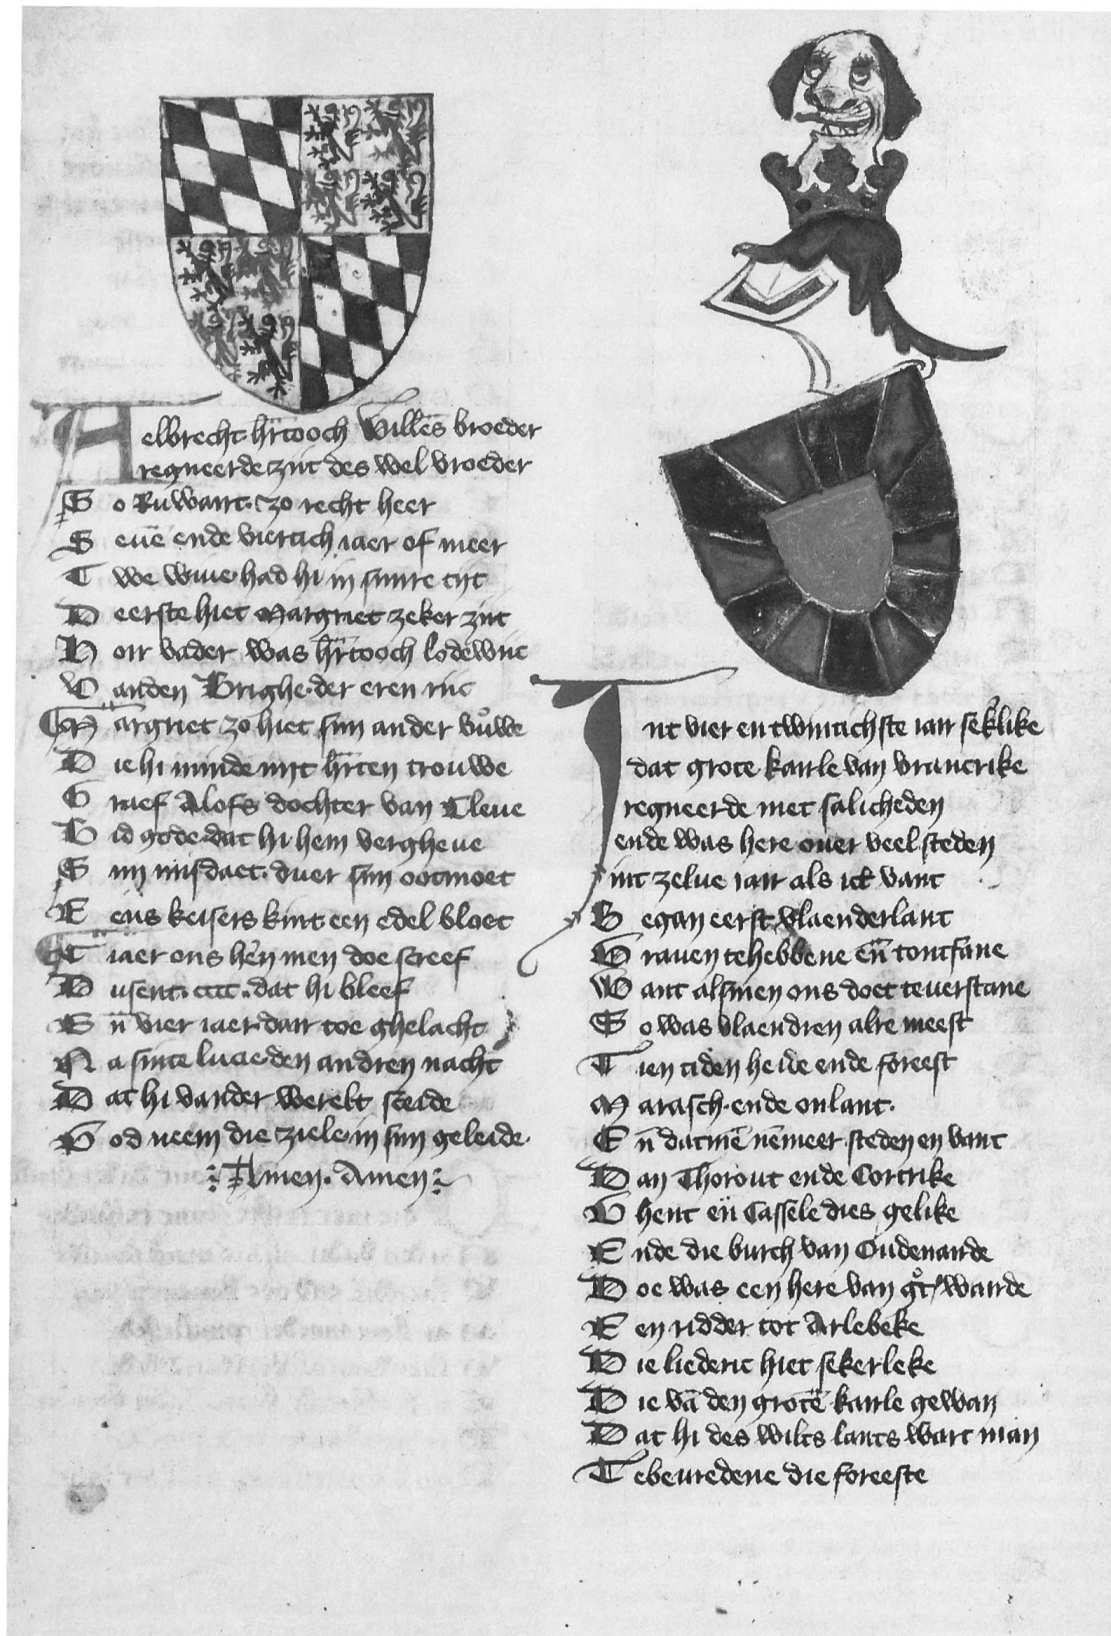 Aelbrecht hr̄tooch Willēs broeder
regneerde zint des wel vroeder
So Ruwart. zo recht heer
Sevē ende viertich iaer of meer
Twe wiue had hi in sinre tijt
Deerste hiet Margriet zeker zijt
Hoir vader was hr̄tooch lodewijc
Vanden Brighe. der eren rijc
Margriet zo hiet sijn ander vrouwe
Die hi minde mijt hr̄ten trouwe
Graef Alofs dochter van Cleue
Bid gode dat hi hem vergheue
Sijn misdaet. duer sijn ootmoet
Eens keisers kint een edel bloet
Tiaer ons hēn men doe screef
Dusent. cccc. dat hi bleef
En̄ vier iaer dair toe ghelacht
Na sinte lucie den andren nacht
Dat hi vander werelt sceide
God neem die ziele in sijn geleide.
Amen. Amen
Int vier en twintichste iair sek̄like
dat grote kairle van vrancrike
regneerde met salicheden
ende was here ouer veel steden
int zelue iair als ick vant
Began eerst vlaenderlant
Grauen te hebbene en̄ tontfane
Want alsmen ons doet te verstane
So was vlaendren alre meest
Tien tiden heide ende foreest
Marasch. ende onlant.
En̄ datmē nēmeer steden en vant
Dan Thorout ende Cortrike
Ghent en̄ Cassele dies gelike
Ende die burch van Oudenairde
Doe was een here van gͦt' wairde
Een ridder tot Arlebeke
Die liederic hiet sekerleke
Die vā den grotē kairle gewan
Dat hi des wilts lants wart man
Te beuredene die foreeste